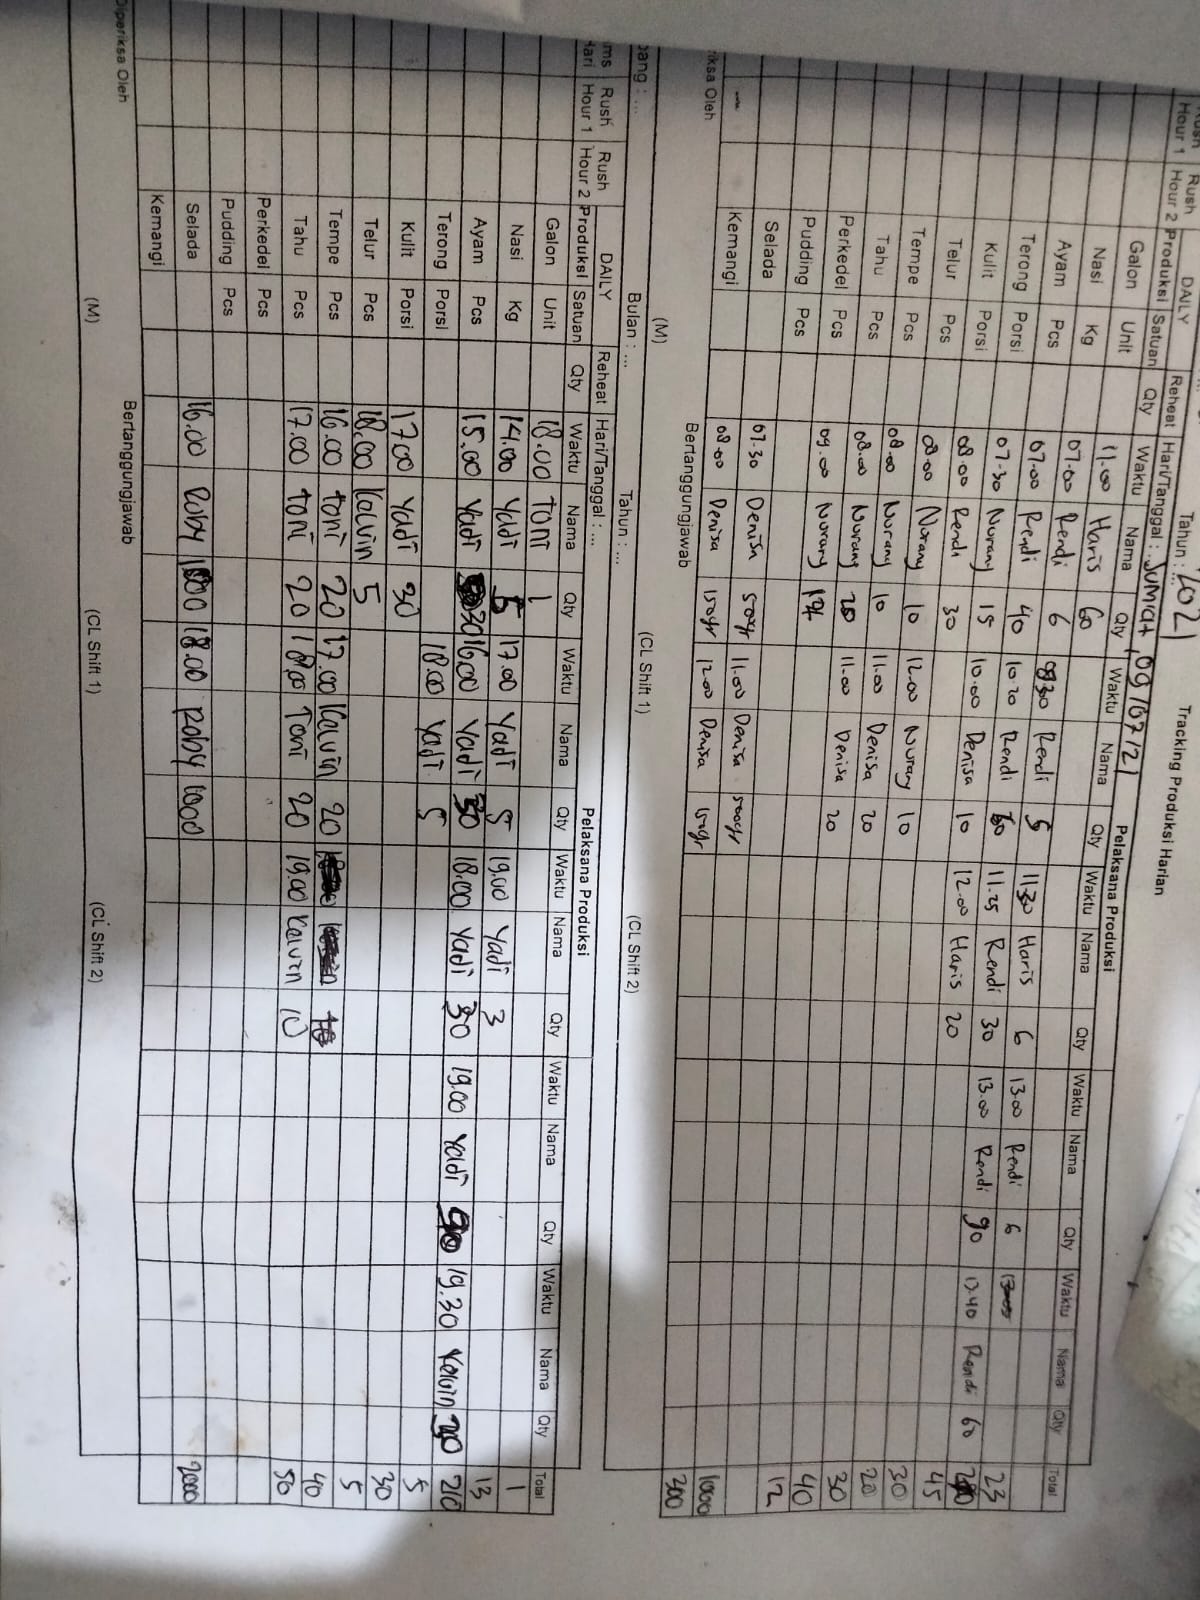 Tracking Produksi Harlan
Tahun : ... 2021
Rush Hour 1 | Rush Hour 2 | DAILY Produksi | Satuan | Reheat Qty | Hari/Tanggal : Jumat, 09/07/21 | Pelaksana Produksi
Waktu | Nama | Qty | Waktu | Nama | Qty | Waktu | Nama | Qty | Waktu | Nama | Qty | Waktu | Nama | Qty | Total
Galon Unit
Nasi Kg
Ayam Pcs
Terong Porsi
Kulit Porsi
Telur Pcs
Tempe Pcs
Tahu Pcs
Perkedel Pcs
Pudding Pcs
Selada
Kemangi
11.00 Haris 60
07.00 Rendi 6 08.30 Rendi 5 11.30 Haris 6 13.00 Rendi 6 23
07.00 Rendi 40 10.20 Rendi 11.25 Rendi 30 13.00 Rendi 90 13.40 Rendi 60
07.30 Nurany 15 10.00 Denisa 10 12.00 Haris 20 45
08.00 Rendi 30 30
08.00 Nurany 10 12.00 Nurany 10 20
08.00 Nurany 10 11.00 Denisa 20 30
08.00 Nurany 20 11.00 Denisa 20 40
09.00 Nurany 12
07.30 Denisa 500gr 11.00 Denisa 500gr 1000
08.00 Denisa 150gr 12.00 Denisa 150gr 300
riksa Oleh
Bertanggungjawab
(M) (CL Shift 1) (CL Shift 2)
bang : ... Bulan : ... Tahun : ...
Rush Hour 1 | Rush Hour 2 | DAILY Produksi | Satuan | Reheat Qty | Hari/Tanggal : ... | Pelaksana Produksi
Waktu | Nama | Qty | Waktu | Nama | Qty | Waktu | Nama | Qty | Waktu | Nama | Qty | Waktu | Nama | Qty | Total
Galon Unit 18.00 Toni 1 1
Nasi Kg 14.00 Yadi 5 17.00 Yadi 5 19.00 Yadi 3 13
Ayam Pcs 15.00 Yadi 30 16.00 Yadi 30 18.00 Yadi 30 19.00 Yadi 90 19.30 Kalvin 30 210
Terong Porsi 18.00 Yadi 5 5
Kulit Porsi 17.00 Yadi 30 30
Telur Pcs 18.00 Kalvin 5 5
Tempe Pcs 16.00 Toni 20 17.00 Kalvin 20 40
Tahu Pcs 17.00 Toni 20 18.00 Toni 20 19.00 Kalvin 10 50
Perkedel Pcs
Pudding Pcs
Selada 16.00 Roby 1000 18.00 Roby 1000 2000
Kemangi
Diperiksa Oleh
Bertanggungjawab
(M) (CL Shift 1) (CL Shift 2)